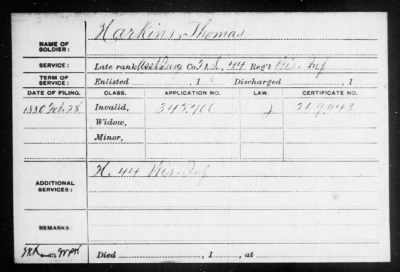 NAME OF SOLDIER: Harkins, Thomas
SERVICE: Late rank Asst Surg Co. F. & S., 44 Reg't Wis. Inf
TERM OF SERVICE: Enlisted , 1 Discharged , 1
DATE OF FILING. CLASS. APPLICATION NO. LAW. CERTIFICATE NO.
1880 Feb. 28 Invalid,
Widow,
Minor,
ADDITIONAL SERVICES: H. 44 Wis. Inf
REMARKS:
Died , 1 , at